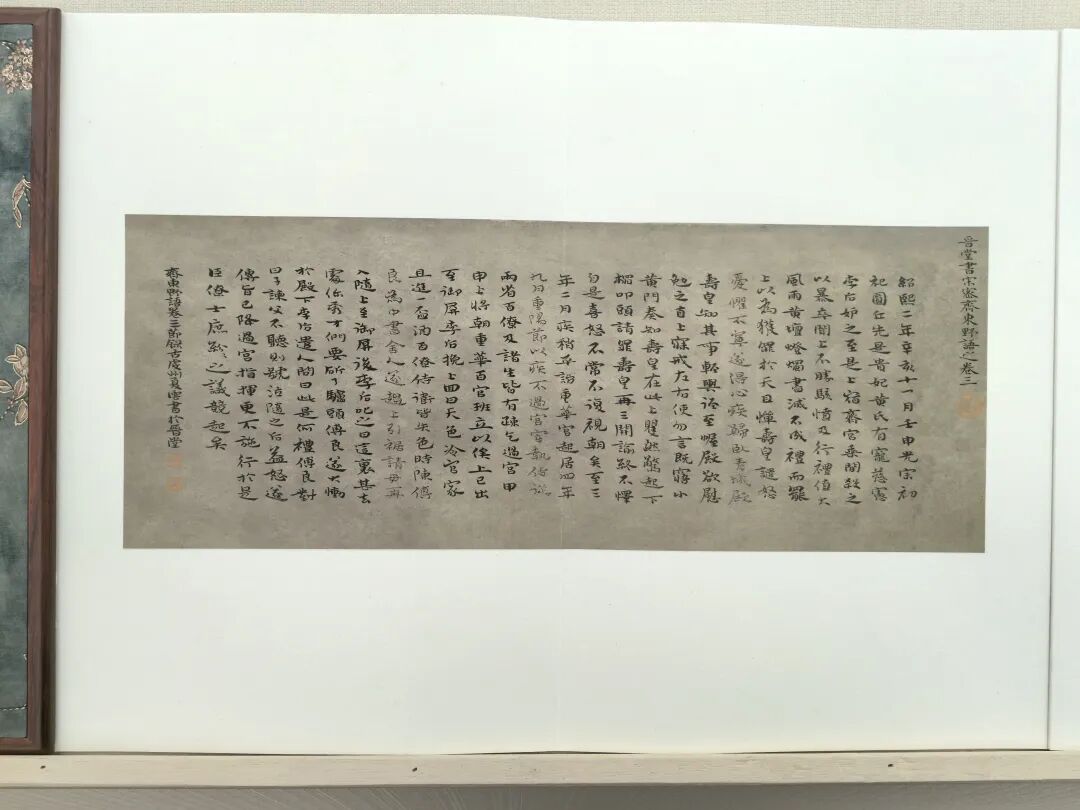 晋堂書宋密齋東野語之卷三
紹熙二年辛亥十一月壬申光宗初
祀圜丘先是貴妃黃氏有寵慈憲
李后妒之至是上宿齋宮乘間殺之
以暴卒聞上不勝駭憤及行禮值大
風雨黃壇燈燭盡滅不成禮而罷
上以為獲罪於天且憚壽皇譴怒
憂懼不寧遂得心疾歸臥青城殿
壽皇知其事輕輿徑至幄殿欲慰
勉之直上寐戒左右使勿言既寤小
黃門奏知壽皇在此上矍然驚起下
榻叩頭請罪壽皇再三開諭終不懌
自是喜怒不常不復視朝矣至三
年二月疾稍平詣重華宮起居四年
九月重陽節以疾不過宮宰執侍從
兩省百僚及諸生皆有疏乞過宮甲
申上將朝重華百官班立以俟上已出
至御屏李后挽上回曰天色冷官家
且進一盃酒百僚侍衛皆失色時陳傅
良為中書舍人遂趨上引裾請毋再
入隨上至御屏後李后叱之曰這裏甚去
處你秀才們要斫了驢頭傅良遂大慟
於殿下李后遣人問曰此是何禮傅良對
曰子諫父不聽則號泣隨之后益怒遂
傳旨已降過宮指揮更不施行於是
臣僚士庶紛紛之議競起矣
齊東野語卷三節錄古慶州夏雲書於晉堂